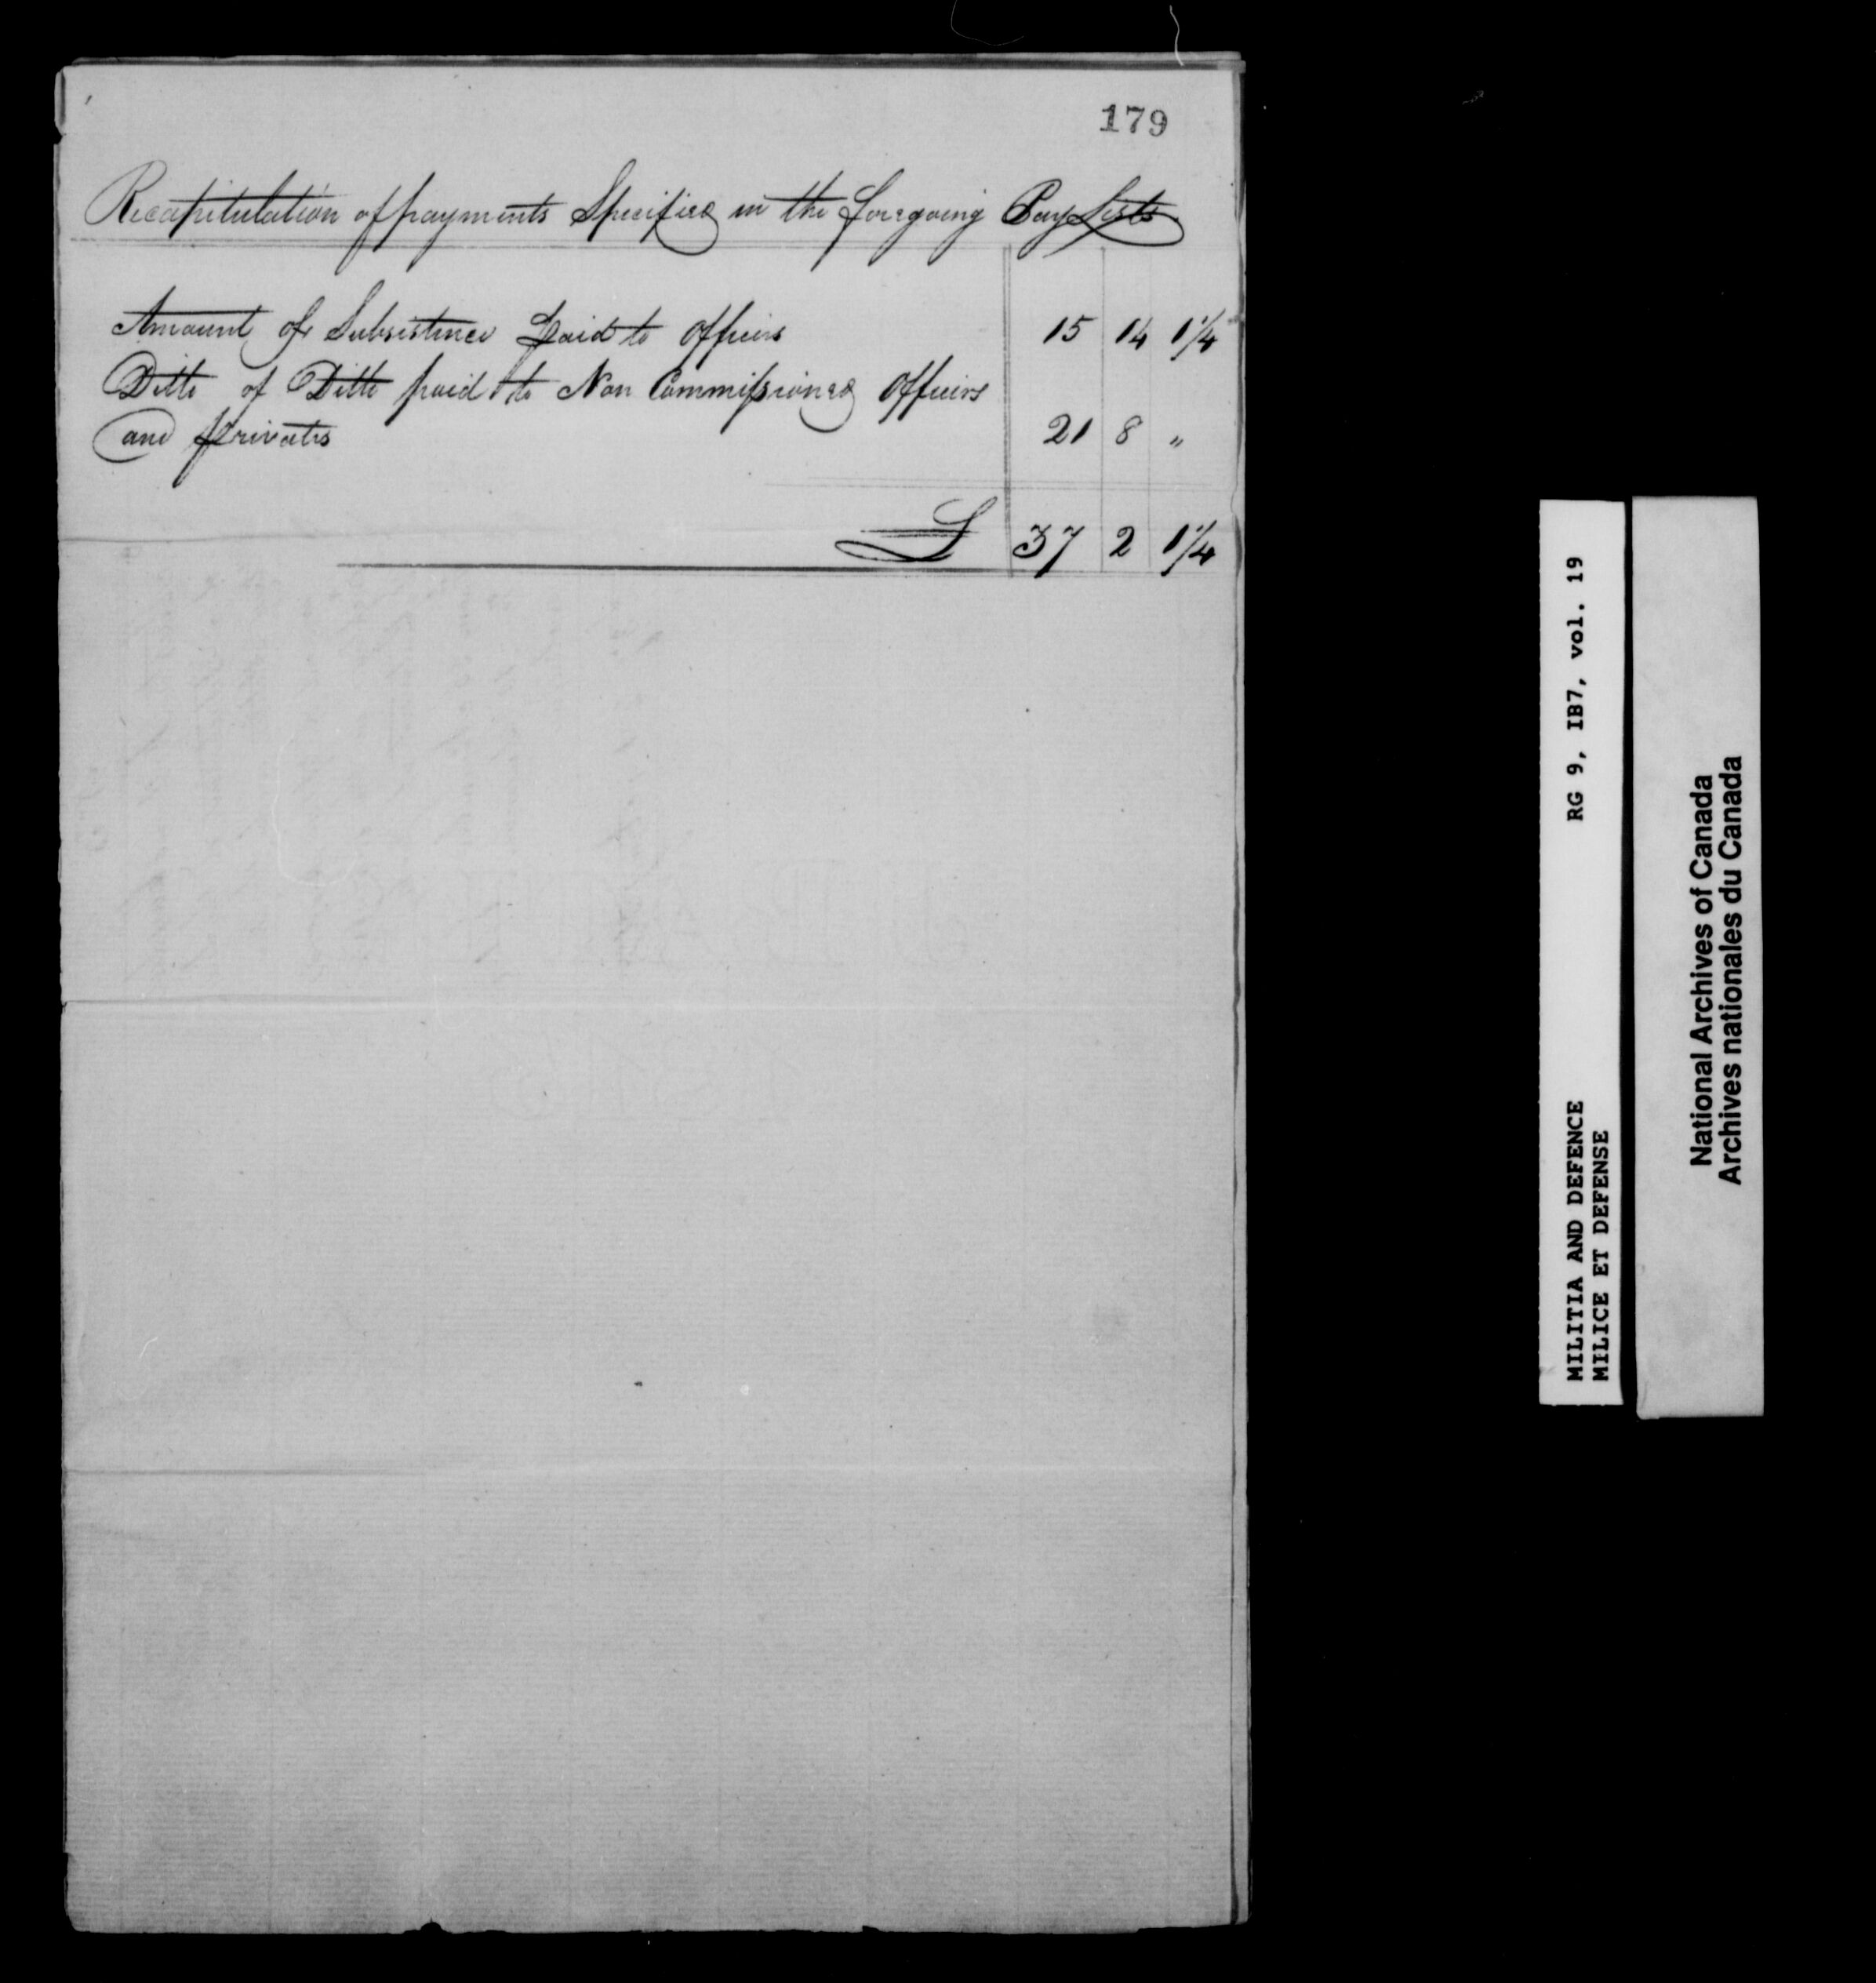 179
Recapitulation of payments Specified in the foregoing Pay Lists
Amount of Subsistence paid to officers 15 14 1 1/4
Ditto of Ditto paid to Non Commissioned officers
and privates 21 8 "
£ 37 2 1 1/4
MILITIA AND DEFENCE RG 9, IB7, vol. 19
MILICE ET DEFENSE
National Archives of Canada
Archives nationales du Canada